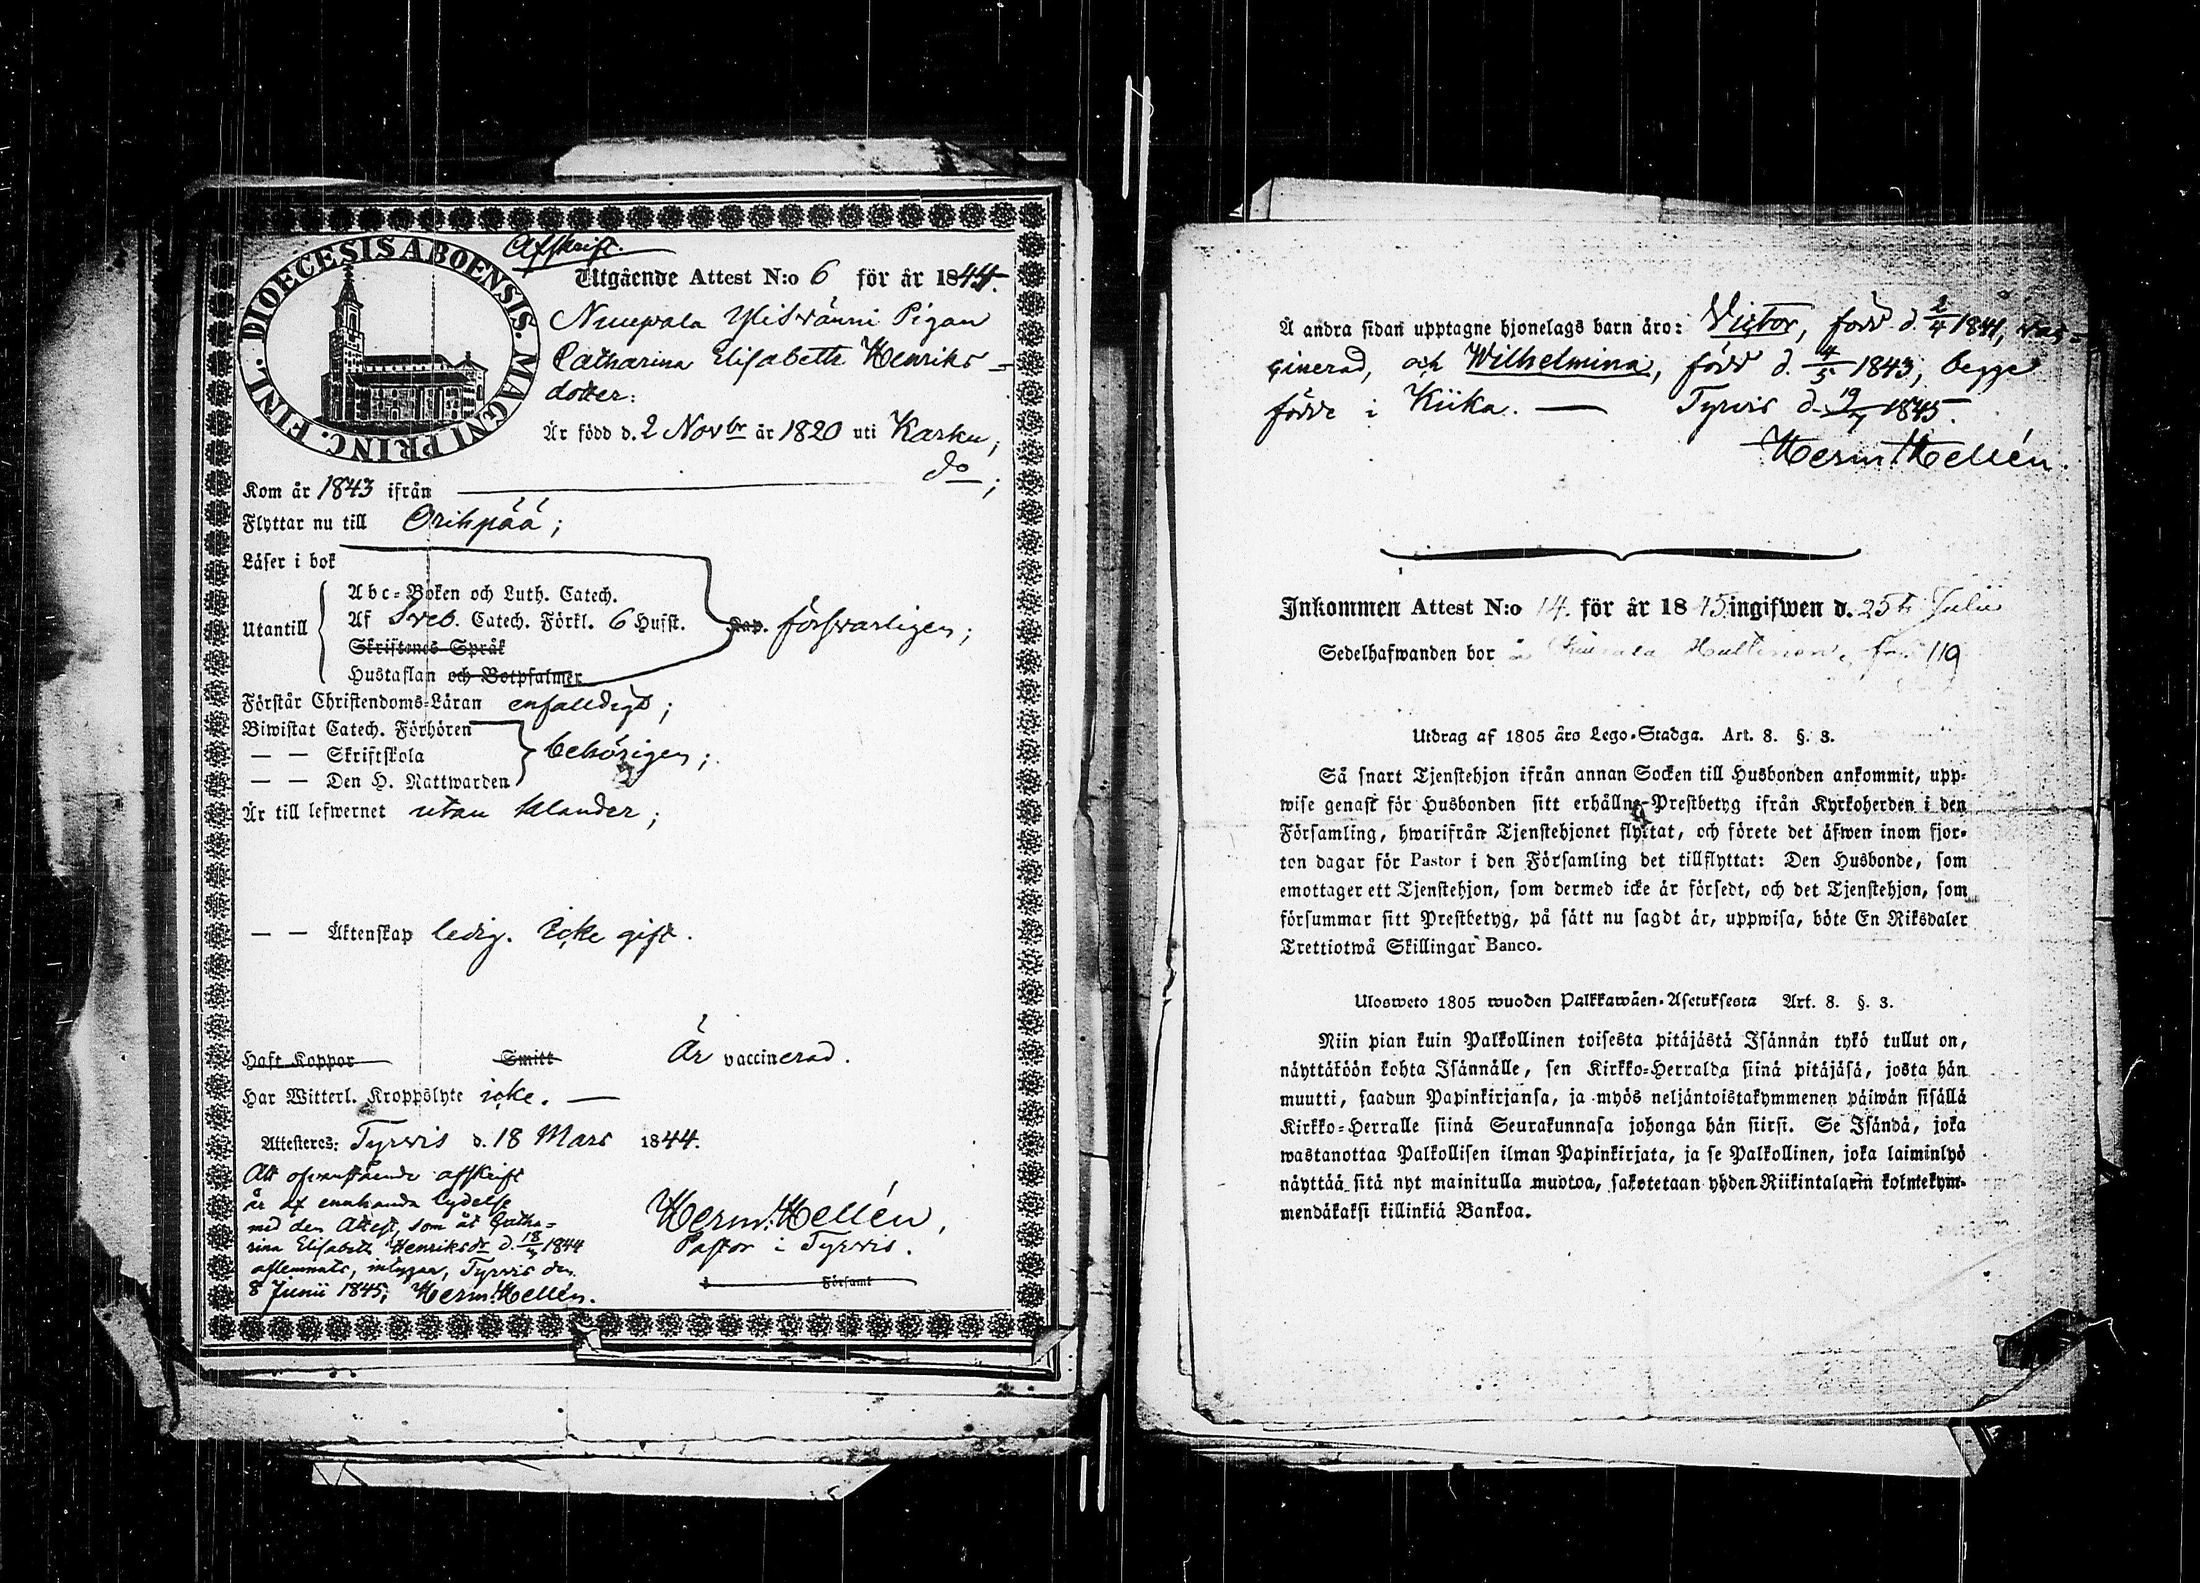 DIOECESIS ABOENSIS. MAGNI PRINC. FINL.
Afskrift.
Utgående Attest N:o 6 för år 1844.
Nuupala Yliswänni Pigan
Catharina Elisabeth Henriks-
dotter:
Är född d. 2 Novbr år 1820 uti Karku,
Kom år 1843 ifrån do;
Flyttar nu till Orihpää;
Läser i bok
Abc-Boken och Luth. Catech.
Utantill Af Sveb. Catech. Förkl. 6 Hufst. Kap. försvarligen;
Skriftenes Språk
Hustaflan och Botpsalmer
Förstår Christendoms-Läran enfaldigt;
Biwistat Catech. Förhören
— — Skriftskola behörigen;
— — Den H. Nattwarden
Är till lefwernet utan klander;
— — Äktenskap ledig. icke gift.
Haft Koppor Smitt Är vaccinerad.
Har Witterl. Kroppslyte icke. —
Attesteres: Tyrvis d. 18 Mars 1844.
Att ofvanstående afskrift
är af enahanda lydelse
med den Attest, som åt Catha-
rina Elisabeth Henriksdr d. 18/3 1844
aflemnats, intygar, Tyrvis den
8 Junii 1845; Herm. Hellén.
Herm. Hellén,
Pastor i Tyrvis.
Församl
Å andra sidan upptagne hjonelags barn äro: Victor, född d. 2/4 1841, vac-
cinerad, och Wilhelmina, född d. 4/5 1843, begge
födde i Kiika. — Tyrvis d. 19/7 1845.
Herm. Hellén.
Inkommen Attest N:o 14. för år 1845 ingifwen d. 25 Julii
Sedelhafwanden bor å 119
Utdrag af 1805 års Lego-Stadga. Art. 8. §. 3.
Så snart Tjenstehjon ifrån annan Socken till Husbonden ankommit, upp-
wise genast för Husbonden sitt erhållne Prestbetyg ifrån Kyrkoherden i den
Församling, hwarifrån Tjenstehjonet flyttat, och förete det äfwen inom fjor-
ton dagar för Pastor i den Församling det tillflyttat: Den Husbonde, som
emottager ett Tjenstehjon, som dermed icke är försedt, och det Tjenstehjon, som
försummar sitt Prestbetyg, på sätt nu sagdt är, uppwisa, böte En Riksdaler
Trettiotwå Skillingar Banco.
Ulosweto 1805 wuoden Palkkawäen-Asetuksesta Art. 8. §. 3.
Niin pian kuin Palkollinen toisesta pitäjästä Isännän tykö tullut on,
näyttäköön kohta Isännälle, sen Kirkko-Herralda siinä pitäjäsä, josta hän
muutti, saadun Papinkirjansa, ja myös neljäntoistakymmenen päiwän sisällä
Kirkko-Herralle siinä Seurakunnasa johonga hän siirsi. Se Isändä, joka
wastanottaa Palkollisen ilman Papinkirjata, ja se Palkollinen, joka laiminlyö
näyttää sitä nyt mainitulla muotoa, sakotetaan yhden Riikintalarin kolmekym-
mendäkaksi killinkiä Bankoa.